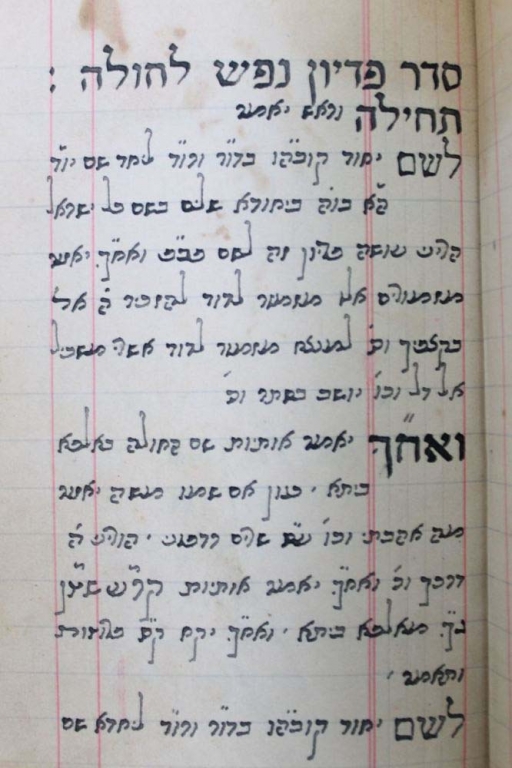 סדר פדיון נפש לחולה :
תחילה וראש יאמר
לשם יחוד קובה"ו בדו"ר ורו"ד ליחד שם יו"ד
ק"א בו"ק ביחודא שלים בשם כל ישראל
הרינו עושה פדיון זה לשם ואח"ך יאמר
מזמורים אלו מזמור לדוד להזכיר ה' אל
בקצפך וכו' למנצח מזמור לדוד אשרי משכיל
אל דל וכו' יושב בסתר וכו'
ואח"ך יאמר אותיות שם החולה באלפא
ביתא , כגון אם שמו משה יאמר
מה אהבתי וכו' שי"ן שרים רדפוני , ה"י הורני ה'
דרכך וכו' ואח"ך יאמר אותיות קר"ע שט"ן
ג"ך מאלפא ביתא , ואח"ך יקח ק"ס מטבעות
ותאמר ,
לשם יחוד קובה"ו בדו"ר ורו"ד ליחדא שם